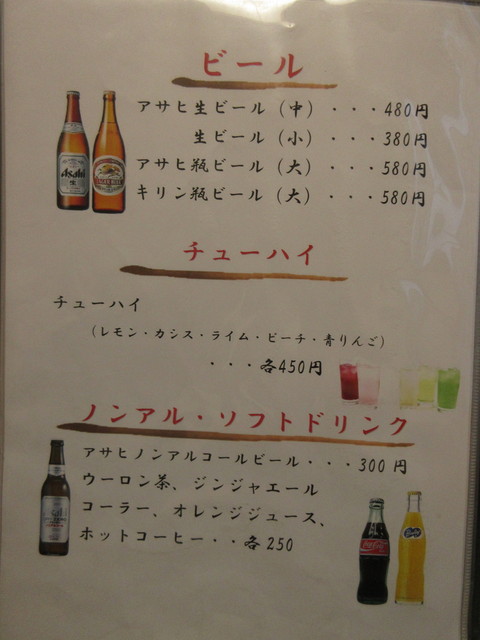 ビール
アサヒ生ビール（中）・・・480円
生ビール（小）・・・380円
アサヒ瓶ビール（大）・・・580円
キリン瓶ビール（大）・・・580円
チューハイ
チューハイ
（レモン・カシス・ライム・ピーチ・青りんご）
・・・各450円
ノンアル・ソフトドリンク
アサヒノンアルコールビール・・・300円
ウーロン茶、ジンジャエール
コーラー、オレンジジュース、
ホットコーヒー・・各250
Asahi
生
Coca-Cola